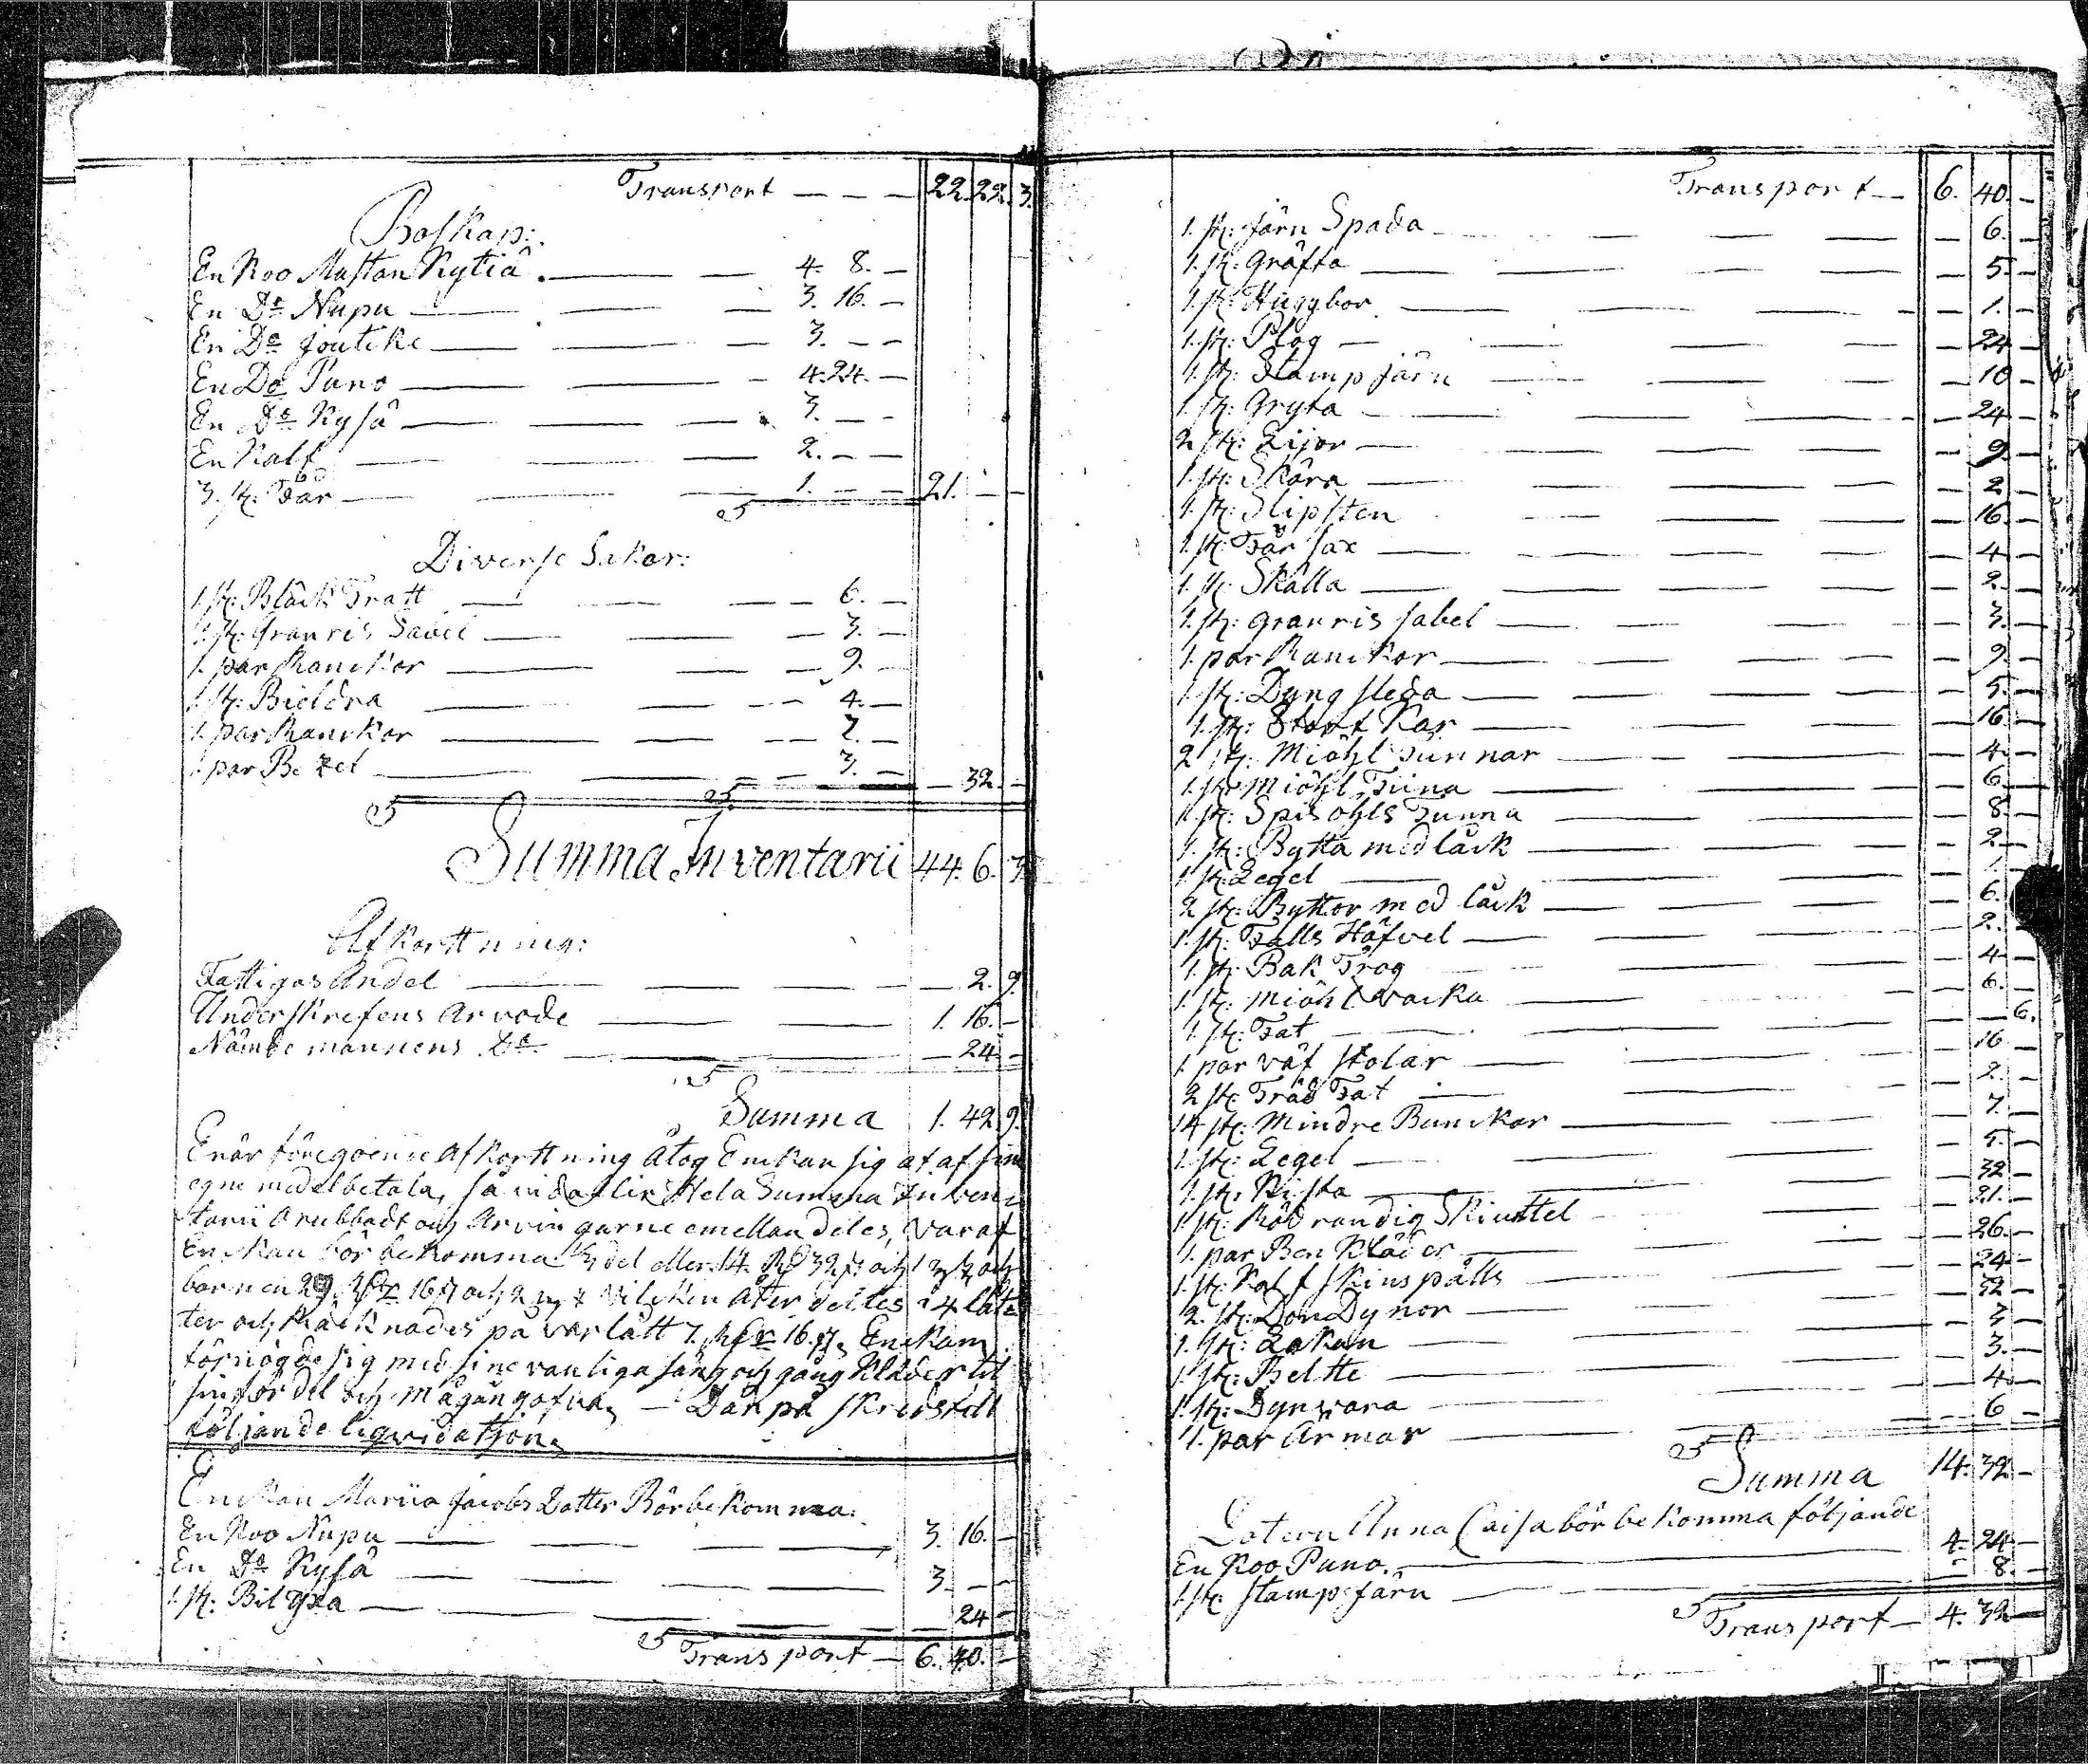 Transport — — — 22. 22. 3.
Boskap:
En Koo Mustan Kytiä. — — 4. 8. —
En Do Nupu — — — 3. 16. —
En Do Joutike — — — 3. — —
En Do Puno — — — 4. 24. —
En Do Kysä — — — 3. — —
En Kalf — — — 2. — —
3. st: Får — — — 1. — — 21. — —
Diverse Saker:
1. st: Bläck Tratt — — — 6. —
1. st: Granris Sabel — — — 3. —
1. par Ranckor — — — 9. —
1. st: Bieldra — — — 4. —
1. par Ranckor — — — 7. —
1. par Betzel — — — 3. — — 32. —
Summa Inventarii 44. 6. 3.
Afkorttning:
Fattigas Andel — — — 2. 9.
Underskrefens Arvode — — — 1. 16. —
Nämbdemannens Do — — — 24. —
Summa 1. 42. 9.
Enär föregoende Afkorttning åtog Enckan sig at af sine
egne medel betala, så
tarii Orubbadt och Arvingarne emellan deles, Varaf
Enckan bör bekomma 1/3 del eller 14. Rd 32 s: och 1 och
barnen 29 Rdr 16 s och 2 Vilcken åter deltes i 4 låt
ter och Räcknades på var lått 7. Rdr 16. s, Enckan
förnögde sig med sine vanliga säng och gång Kläder til
sin fördel och Mågångofva, — Där på skreds till
följande liqvidation,
Enckan Mariia Jacobs Dotter Bör bekomma:
En Koo Nupu — — — 3. 16. —
En Do Kyså — — — 3. — —
1. st: Bil Yxa — — — 24 —
Transport — 6. 40. —
Transport — 6. 40. —
1. st: järn Spada — — — 6. —
1. st: Gräfta — — — 5. —
1. st: Huggbor — — — 1. —
1. st: Plog — — — 24 —
1. st: Stamp järn — — — 10 —
1. st: Gryta — — — 24 —
2 st: Lijor — — — 9. —
1. st: Skära — — — 2 —
1. st: Slipsten — — — 16. —
1. st: Får sax — — — 4 —
1. st: Skålla — — — 2. —
1. st: granris sabel — — — 3. —
1. par Ranckor — — — 9. —
1. st: Dyng sleda — — — 5. —
1. st: Stort Kar — — — 16. —
2 st: Miöhl Tunnar — — — 4. —
1. st: Miöhl Tiina — — — 6. —
1. st: Spisöhls Tunna — — — 8. —
1. st: Bytta med låck — — — 2. —
1. st: Legel — — — 1. —
2 st: Byttor med låck — — — 6. —
1. st: Falls Höfvel — — — 2. —
1. st: Bak Trog — — — 4 —
1. st: Miöhl Wacka — — — 6. —
1. st: Fat — — — — 6.
1. par väf stolar — — — 16 —
2 st: Träd Fat — — — 2. —
14 st: Mindre Bunckar — — — 7. —
1. st: Legel — — — 5. —
1. st: Kista — — — 32 —
1. st: Rödrandig Skiuttel — — — 21. —
1. par Ben Kläder — — — 26. —
1. st: Kalfskinspälls — — — 24 —
2. st: Don Dynor — — — 32 —
1. st: Lakan — — — 3 —
1. st: Beltte — — — 3. —
1. st: Dynvara — — — 4 —
1. par Armar — — — 6 —
Summa 14. 32 —
Dotern Anna Caisa bör bekomma följande
En Koo Puno. — — — 4. 24 —
1. st: stamp järn — — — 8. —
Transport — 4. 32 —